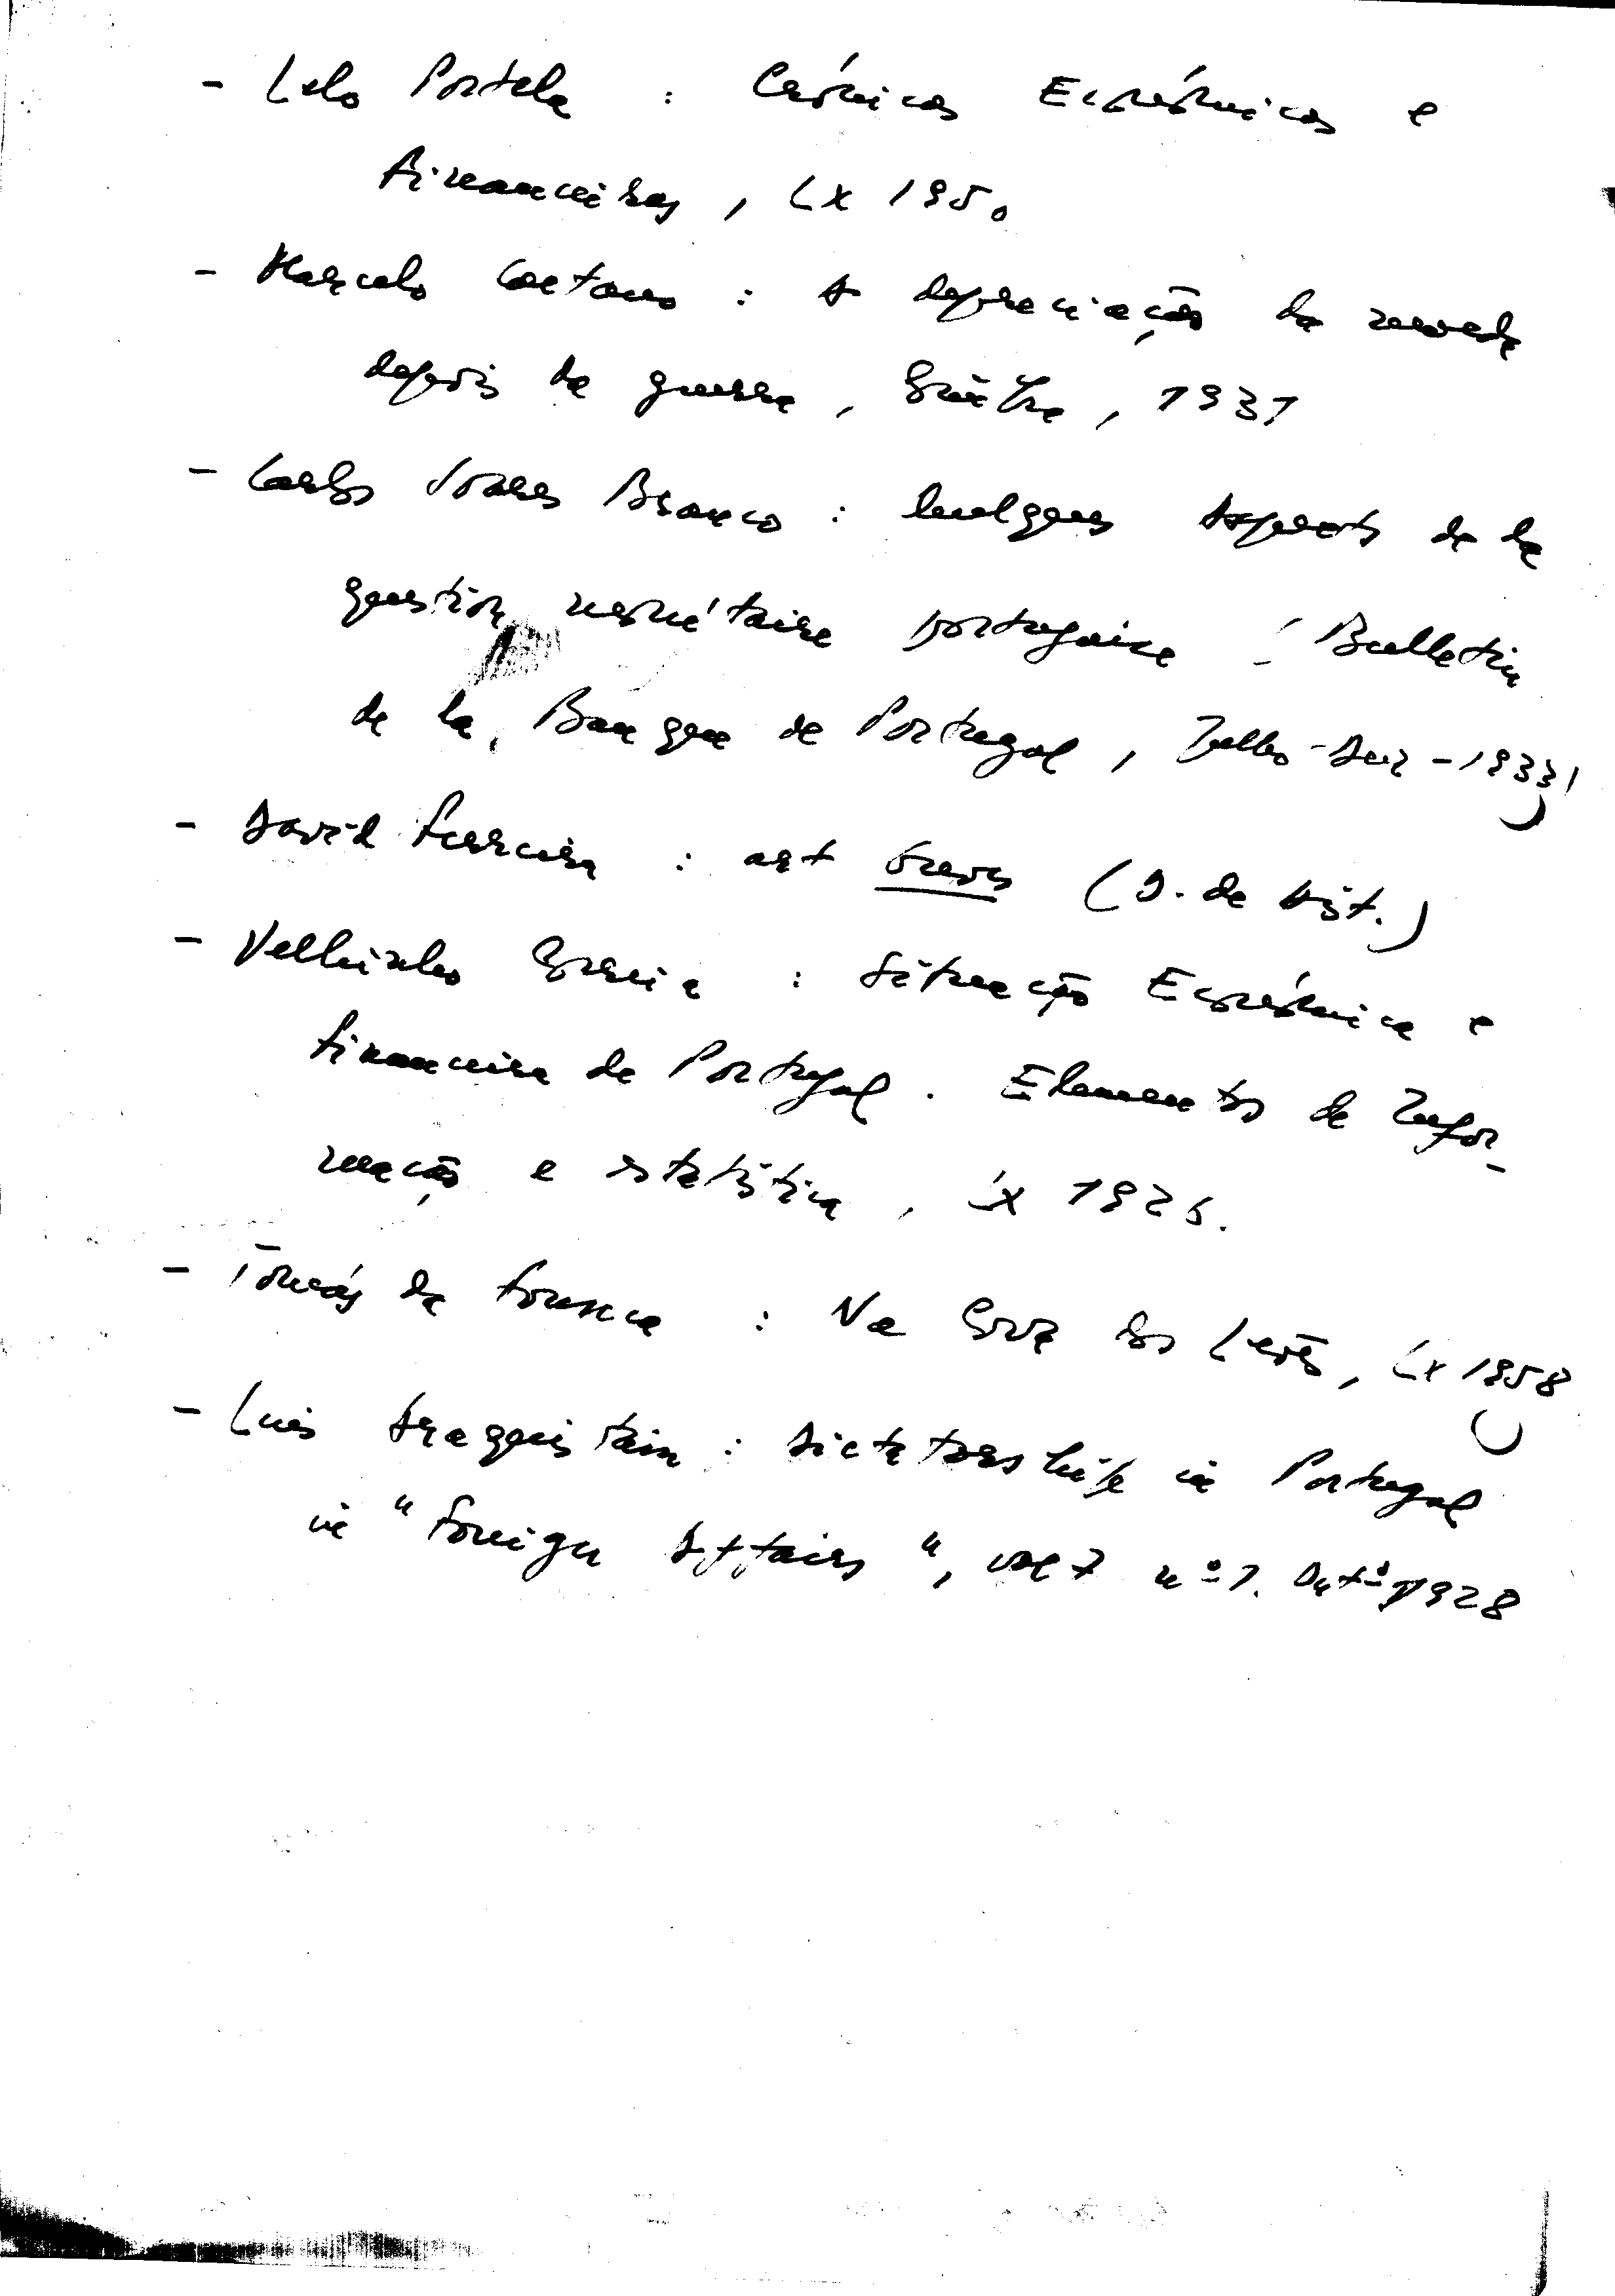 - Lelo Portela : Crónicas Económicas e
Financeiras, Lx 1950
- Marcelo Caetano : A depreciação da moeda
depois da guerra, Coimbra, 1931
- Carlos Soares Branco : Quelques Aspects de la
question monétaire portugaise / Bulletin
de la Banque de Portugal, Julho-Dez-1933/
- David Ferreira : art Greves (D. de Hist.)
- Velhinho Correia : Situação Económica e
Financeira de Portugal. Elementos de Infor-
mação e estatística, Lx 1926.
- Tomás da Fonseca : Na Cova dos Leões, Lx 1958
- Luis Araquistain : Dictatorship in Portugal
in "Foreign Affairs", vol 7 nº 1. Outº 1928